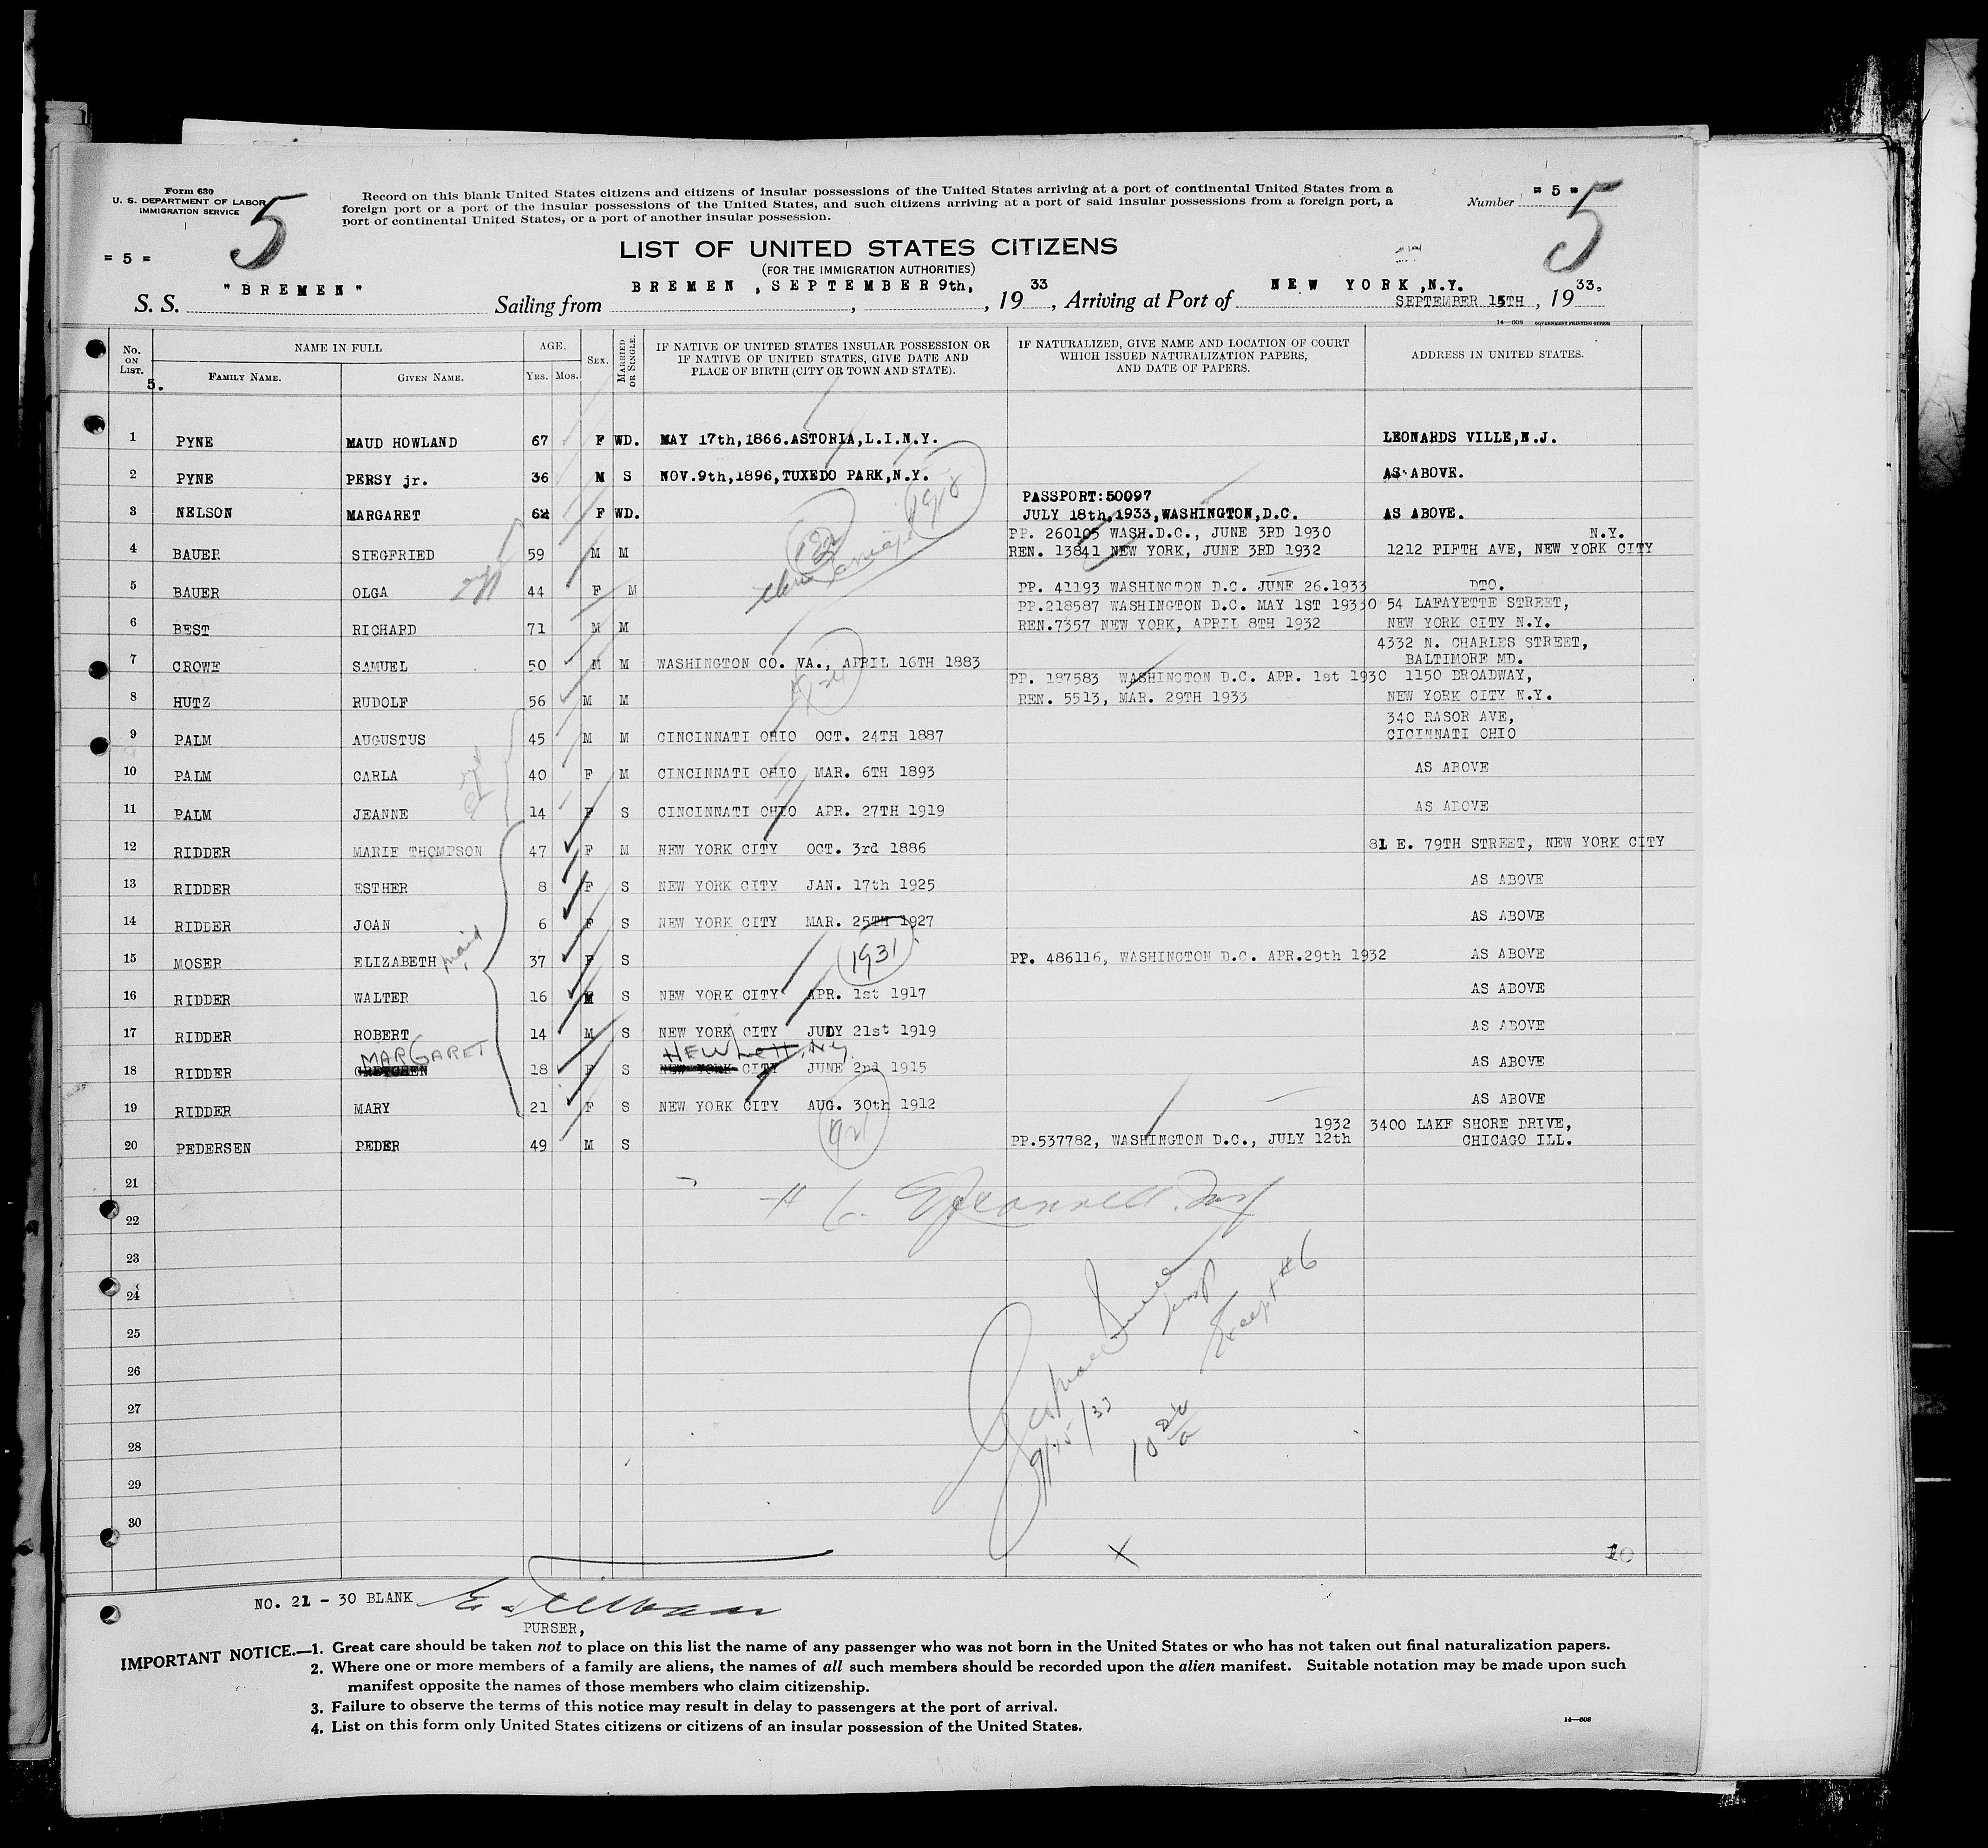 Form 630
U. S. DEPARTMENT OF LABOR
IMMIGRATION SERVICE
5
Record on this blank United States citizens and citizens of insular possessions of the United States arriving at a port of continental United States from a
foreign port or a port of the insular possessions of the United States, and such citizens arriving at a port of said insular possessions from a foreign port, a
port of continental United States, or a port of another insular possession.
Number = 5 =
5
= 5 =
LIST OF UNITED STATES CITIZENS
(FOR THE IMMIGRATION AUTHORITIES)
S. S. "BREMEN" Sailing from BREMEN, SEPTEMBER 9th, , 1933, Arriving at Port of NEW YORK, N.Y. SEPTEMBER 15TH, 1933.
14—608 GOVERNMENT PRINTING OFFICE
No. ON LIST. NAME IN FULL FAMILY NAME. GIVEN NAME. AGE. YRS. MOS. SEX. MARRIED OR SINGLE. IF NATIVE OF UNITED STATES INSULAR POSSESSION OR IF NATIVE OF UNITED STATES, GIVE DATE AND PLACE OF BIRTH (CITY OR TOWN AND STATE). IF NATURALIZED, GIVE NAME AND LOCATION OF COURT WHICH ISSUED NATURALIZATION PAPERS, AND DATE OF PAPERS. ADDRESS IN UNITED STATES.
5.
1 PYNE MAUD HOWLAND 67 F WD. MAY 17th,1866.ASTORIA,L.I.N.Y. LEONARDS VILLE,N.J.
2 PYNE PERSY jr. 36 M S NOV.9th,1896,TUXEDO PARK,N.Y. AS ABOVE.
1918
PASSPORT:50097
3 NELSON MARGARET 62 F WD. JULY 18th,1933,WASHINGTON,D.C. AS ABOVE.
PP. 260105 WASH.D.C., JUNE 3RD 1930 N.Y.
4 BAUER SIEGFRIED 59 M M REN. 13841 NEW YORK, JUNE 3RD 1932 1212 FIFTH AVE, NEW YORK CITY
5 BAUER OLGA 44 F M PP. 41193 WASHINGTON D.C. JUNE 26.1933 DTO.
PP.218587 WASHINGTON D.C. MAY 1ST 19330 54 LAFAYETTE STREET,
6 BEST RICHARD 71 M M REN.7357 NEW YORK, APRIL 8TH 1932 NEW YORK CITY N.Y.
4332 N. CHARLES STREET,
7 CROWE SAMUEL 50 M M WASHINGTON CO. VA., APRIL 16TH 1883 BALTIMORE MD.
PP. 187583 WASHINGTON D.C. APR. 1st 1930 1150 BROADWAY,
8 HUTZ RUDOLF 56 M M REN. 5513, MAR. 29TH 1933 NEW YORK CITY N.Y.
340 RASOR AVE,
9 PALM AUGUSTUS 45 M M CINCINNATI OHIO OCT. 24TH 1887 CICINNATI OHIO
10 PALM CARLA 40 F M CINCINNATI OHIO MAR. 6TH 1893 AS ABOVE
11 PALM JEANNE 14 F S CINCINNATI OHIO APR. 27TH 1919 AS ABOVE
12 RIDDER MARIE THOMPSON 47 F M NEW YORK CITY OCT. 3rd 1886 81 E. 79TH STREET, NEW YORK CITY
13 RIDDER ESTHER 8 F S NEW YORK CITY JAN. 17th 1925 AS ABOVE
14 RIDDER JOAN 6 F S NEW YORK CITY MAR. 25TH 1927 AS ABOVE
15 MOSER ELIZABETH maid 37 F S 1931 PP. 486116, WASHINGTON D.C. APR.29th 1932 AS ABOVE
16 RIDDER WALTER 16 M S NEW YORK CITY APR. 1st 1917 AS ABOVE
17 RIDDER ROBERT 14 M S NEW YORK CITY JULY 21st 1919 AS ABOVE
MARGARET HEWLETT, N.Y.
18 RIDDER GRETCHEN 18 F S NEW YORK CITY JUNE 2nd 1915 AS ABOVE
19 RIDDER MARY 21 F S NEW YORK CITY AUG. 30th 1912 AS ABOVE
1932 3400 LAKE SHORE DRIVE,
20 PEDERSEN PEDER 49 M S 1921 PP.537782, WASHINGTON D.C., JULY 12th CHICAGO ILL.
21
22
23
24
25
26
27
28
29
30
Except #6
9/15/33
X
10
NO. 21 - 30 BLANK
PURSER,
IMPORTANT NOTICE.—1. Great care should be taken not to place on this list the name of any passenger who was not born in the United States or who has not taken out final naturalization papers.
2. Where one or more members of a family are aliens, the names of all such members should be recorded upon the alien manifest. Suitable notation may be made upon such
manifest opposite the names of those members who claim citizenship.
3. Failure to observe the terms of this notice may result in delay to passengers at the port of arrival.
4. List on this form only United States citizens or citizens of an insular possession of the United States.
14—608